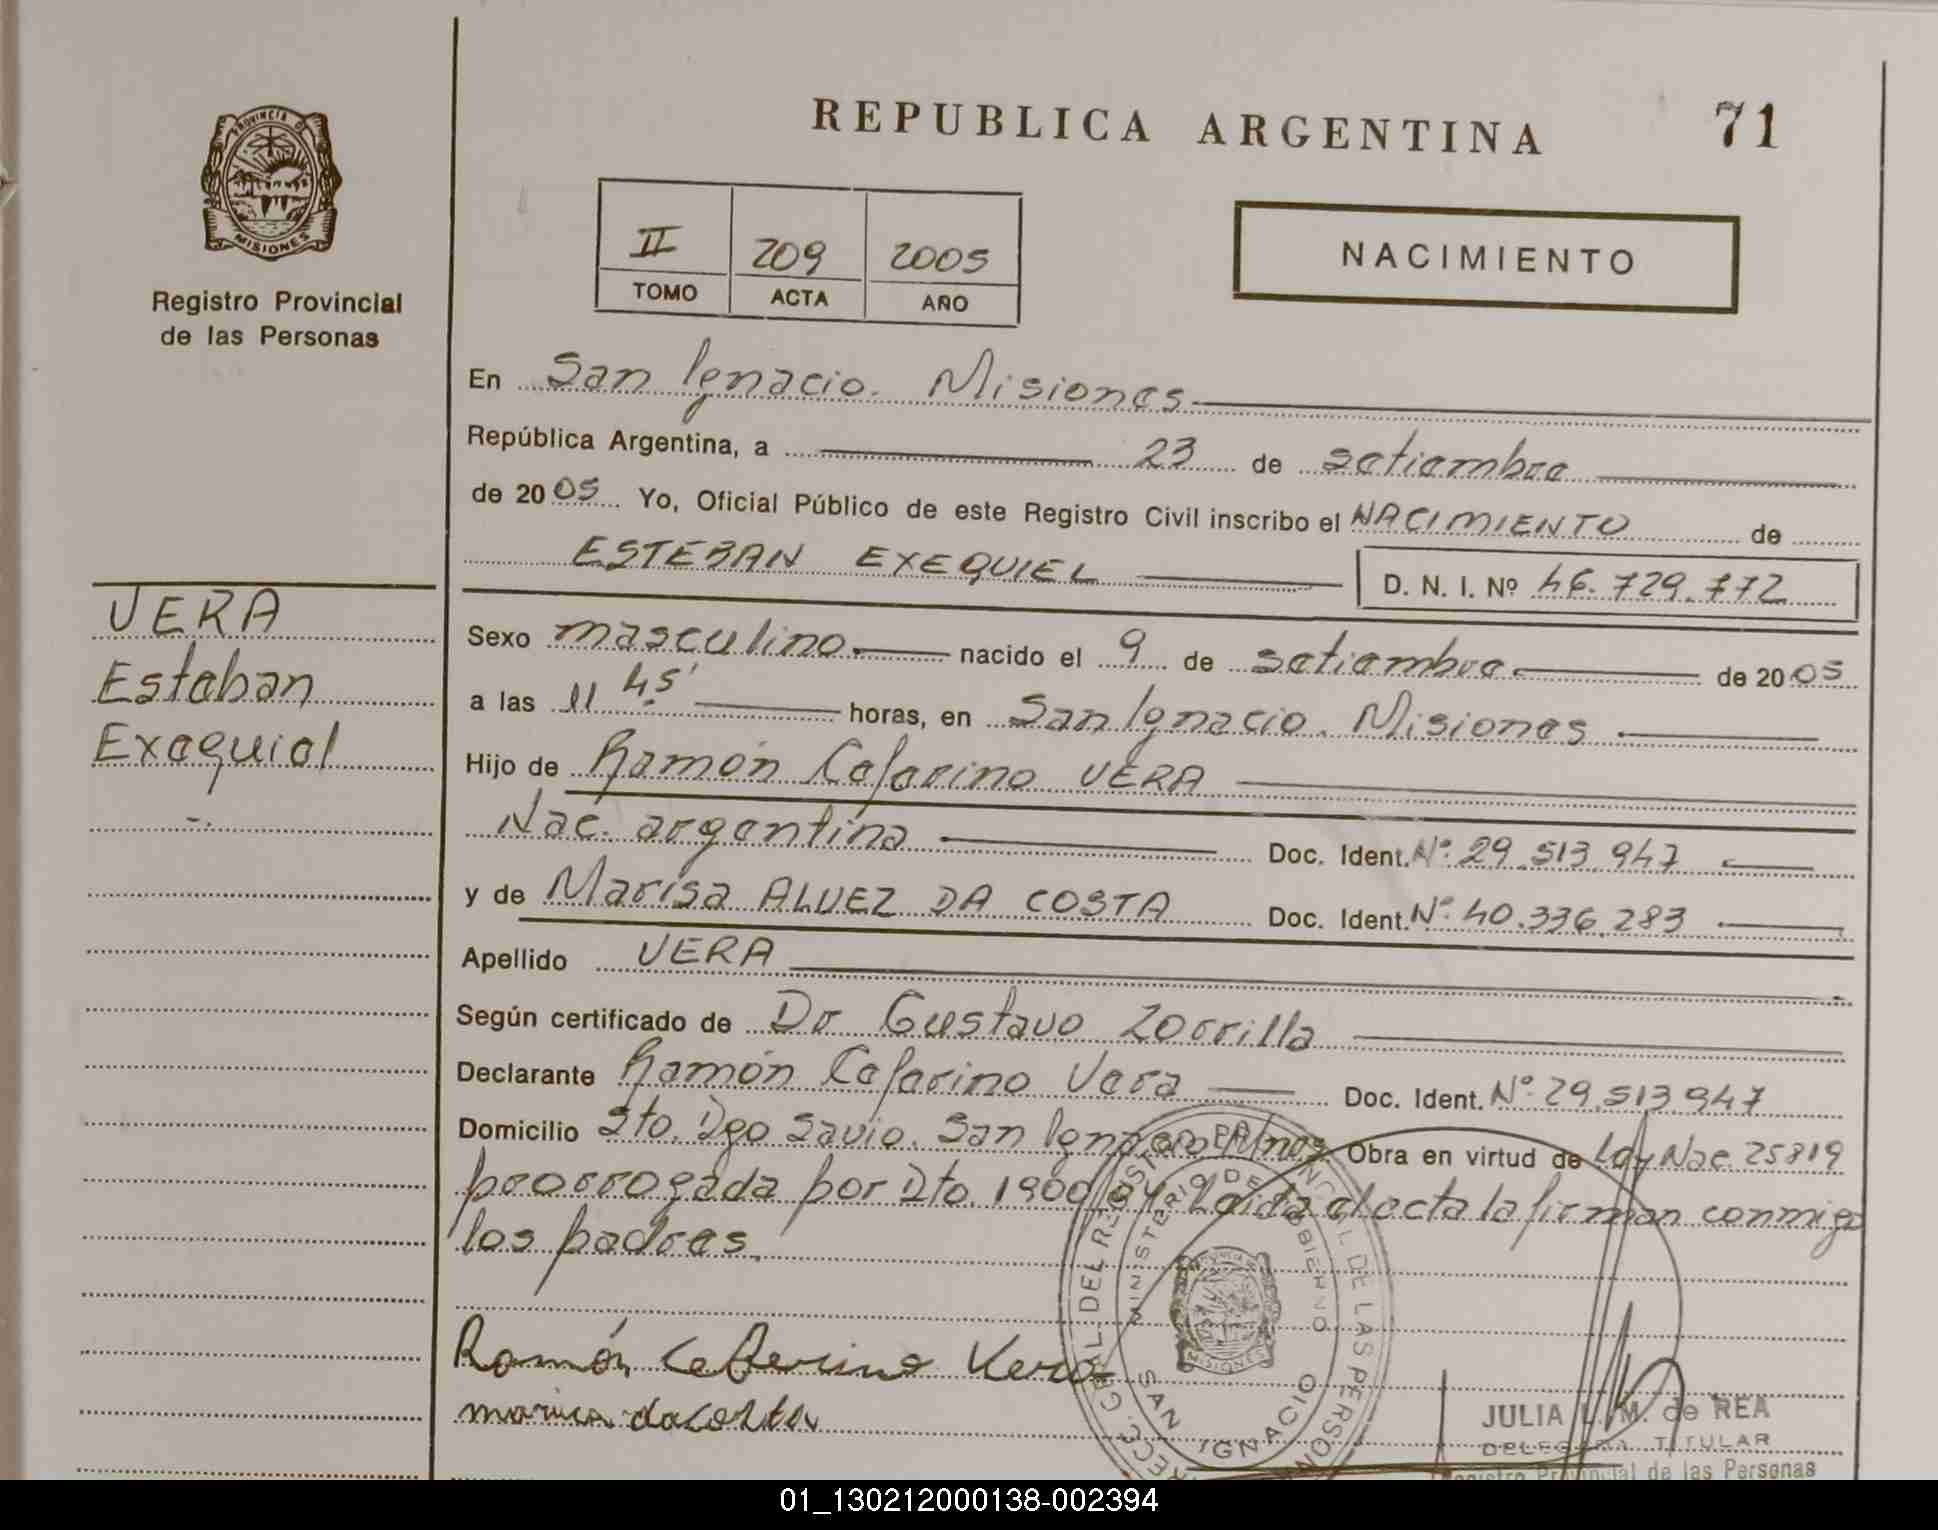 REPUBLICA ARGENTINA 71
PROVINCIA DE
MISIONES
Registro Provincial
de las Personas
II 209 2005
TOMO ACTA AÑO
NACIMIENTO
En San Ignacio. Misiones
República Argentina, a 23 de setiembre
de 2005 Yo, Oficial Público de este Registro Civil inscribo el NACIMIENTO de
ESTEBAN EXEQUIEL D. N. I. Nº 46.729.772
VERA
Esteban
Exequiel
Sexo masculino. nacido el 9 de setiembre. de 2005
a las 11 45' horas, en San Ignacio. Misiones
Hijo de Ramón Ceferino VERA
Nac. argentina Doc. Ident. Nº 29.513.947
y de Marisa ALVEZ DA COSTA Doc. Ident. Nº 40.336.283
Apellido VERA
Según certificado de Dr Gustavo Zorrilla
Declarante Ramón Ceferino Vera Doc. Ident. Nº 29.513.947
Domicilio Sto. Dgo Savio. San Ignacio Mnes Obra en virtud de Ley Nac. 25819
prorrogada por Dto. 1900/04 Leída el acta la firman conmigo
los padres.
Ramón Ceferino Vera
marisa dacosta
DEL REGISTRO PROVINCIAL DE LAS PERSONAS
MINISTERIO DE GOBIERNO
MISIONES
SAN IGNACIO
JULIA L. M. de REA
DELEGADA TITULAR
Registro Provincial de las Personas
01_130212000138-002394